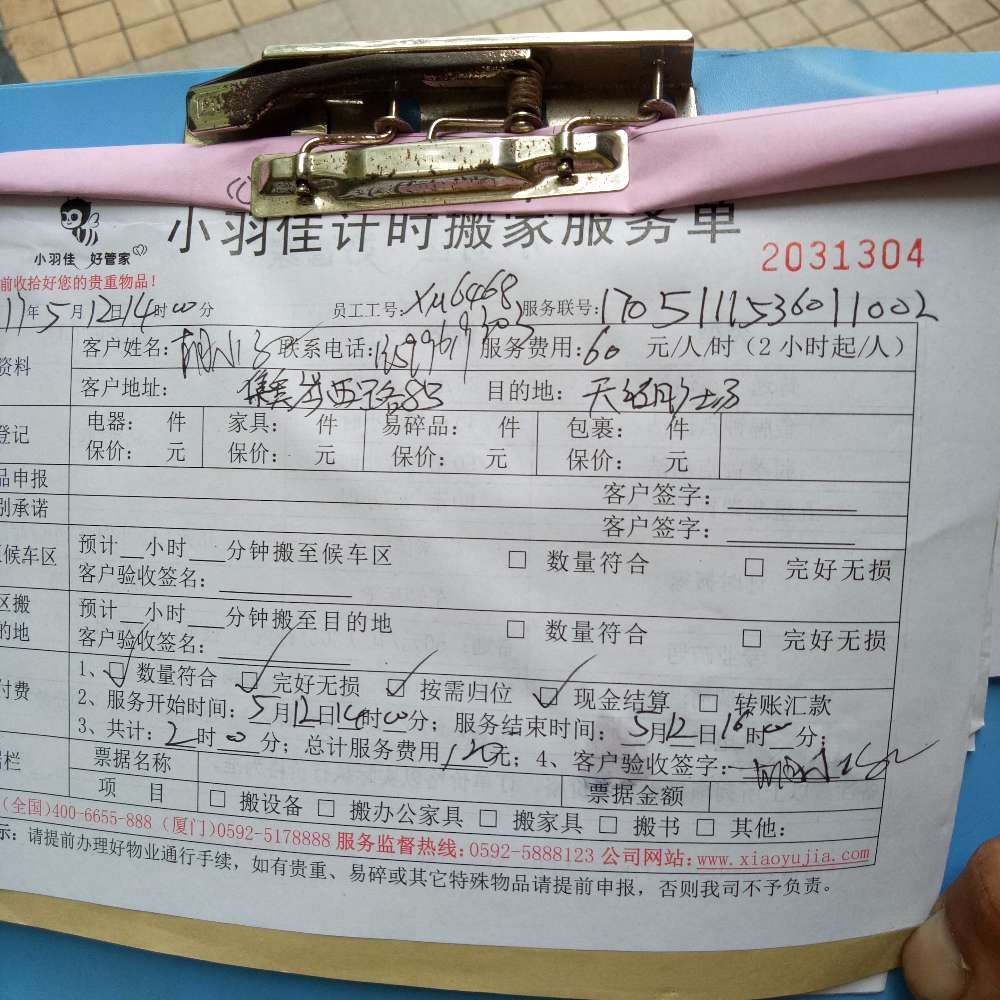 小羽佳计时搬家服务单
小羽佳 好管家
2031304
前收拾好您的贵重物品！
17年5月12日14时00分 员工工号：XM6468 服务联号：1705111536011002
资料
客户姓名： 联系电话：13599619303 服务费用：60 元/人/时（2小时起/人）
客户地址：集美 目的地：
登记
电器： 件 家具： 件 易碎品： 件 包裹： 件
保价： 元 保价： 元 保价： 元 保价： 元
品申报 客户签字：
别承诺 客户签字：
候车区
预计__小时___分钟搬至候车区 □ 数量符合 □ 完好无损
客户验收签名：
区搬
的地
预计__小时___分钟搬至目的地 □ 数量符合 □ 完好无损
客户验收签名：
付费
1、☑ 数量符合 ☑ 完好无损 ☑ 按需归位 ☑ 现金结算 □ 转账汇款
2、服务开始时间：5月12日14时00分；服务结束时间：5月12日16时00分；
3、共计：2时00分；总计服务费用120元；4、客户验收签字：
栏
票据名称 票据金额
项 目 □ 搬设备 □ 搬办公家具 □ 搬家具 □ 搬书 □ 其他：
(全国)400-6655-888 (厦门)0592-5178888 服务监督热线：0592-5888123 公司网站：www.xiaoyujia.com
示：请提前办理好物业通行手续，如有贵重、易碎或其它特殊物品请提前申报，否则我司不予负责。